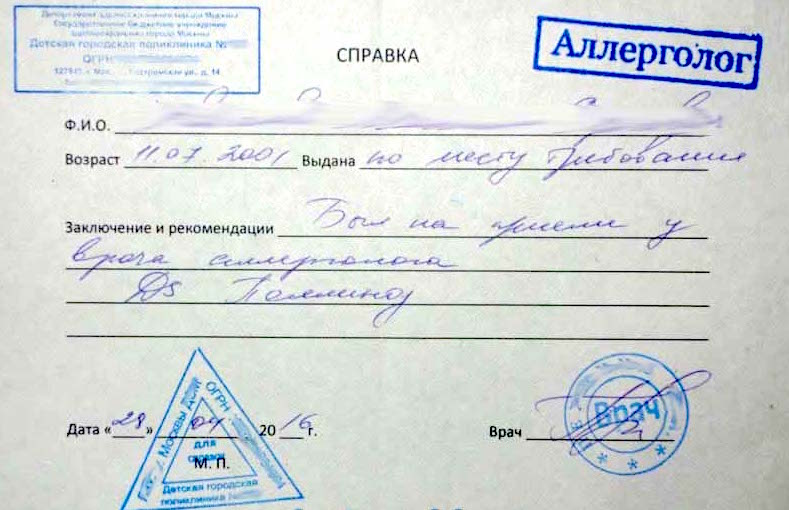 Департамент здравоохранения города Москвы
Государственное бюджетное учреждение
здравоохранения города Москвы
Детская городская поликлиника №
ОГРН
ул., д. 14
СПРАВКА
Аллерголог
Ф.И.О.
Возраст 11.07.2001 Выдана по месту требования
Заключение и рекомендации Был на приеме у
врача аллерголога
Ds Поллиноз
Дата «29» 04 2016 г.
М. П.
Врач
Врач
Москвы
ОГРН
для
справок
Детская городская
поликлиника